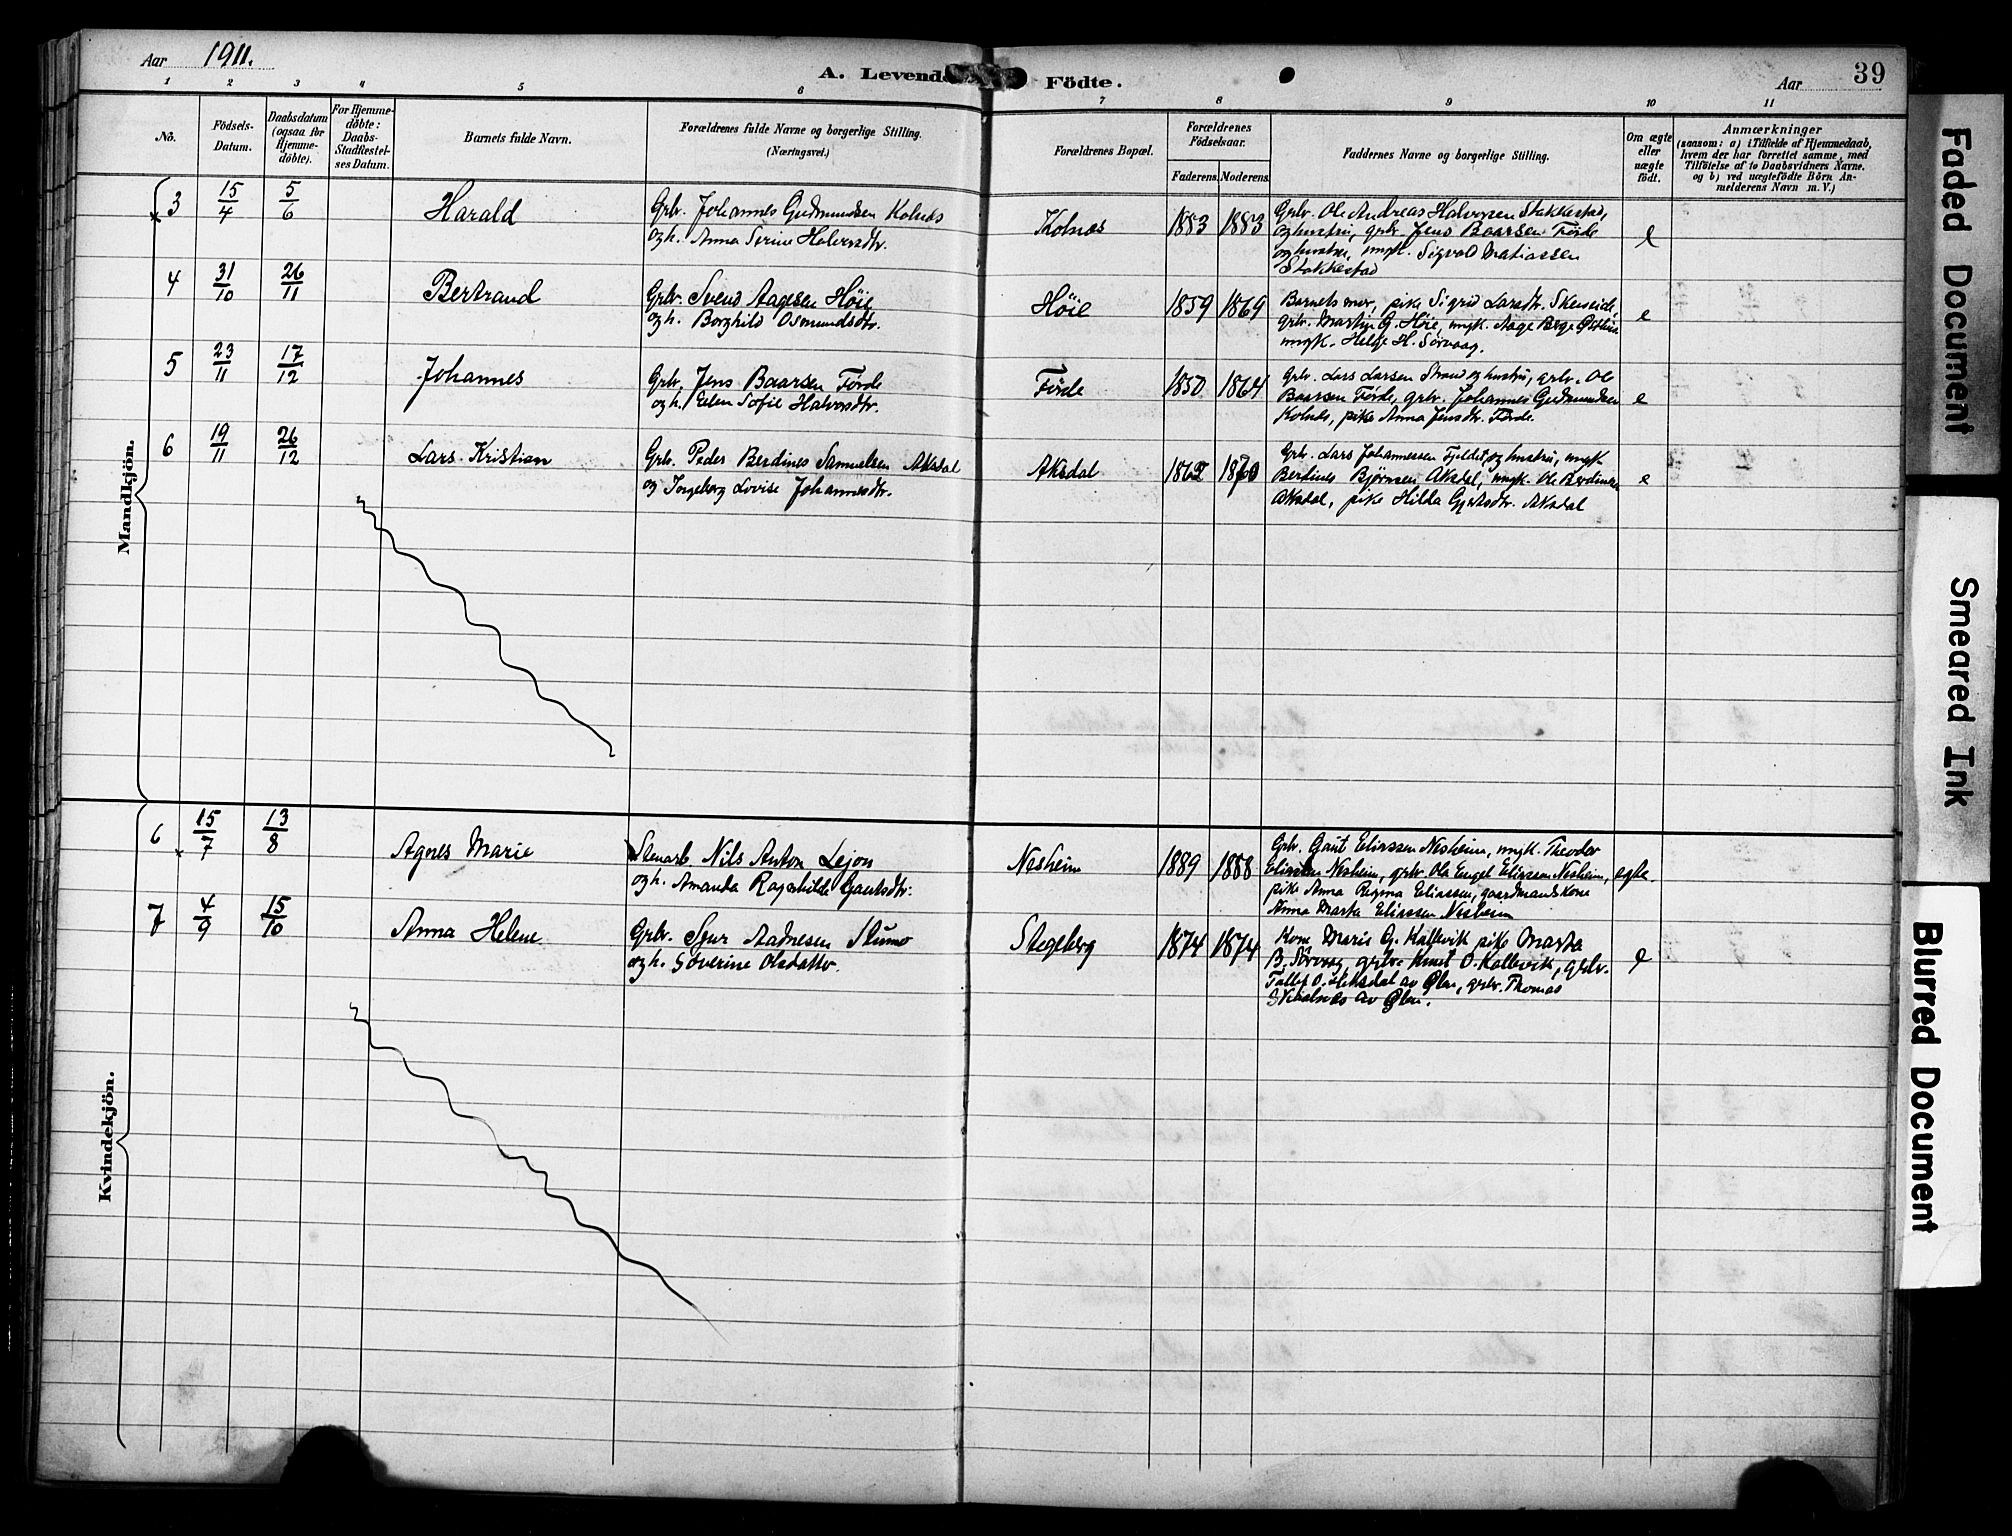 Aar 1911.
A. Levende Födte.
Aar
39
1 2 3 4 5 6 7 8 9 10 11
No.
Födsels-
Datum.
Daabsdatum
(ogsaa for
Hjemme-
döbte).
For Hjemme-
döbte:
Daabs-
Stadfæstel-
ses Datum.
Barnets fulde Navn.
Forældrenes fulde Navne og borgerlige Stilling.
(Næringsvei.)
Forældrenes Bopæl.
Forældrenes
Födselsaar.
Faderens. Moderens.
Faddernes Navne og borgerlige Stilling.
Om ægte
eller
uægte
födt.
Anmærkninger
(saasom: a) i Tilfælde af Hjemmedaab,
hvem der har forrettet samme, med
Tilföielse af to Daabsvidners Navne.
og b) ved uægtefödte Börn An-
melderens Navn m. V.)
Mandkjön.
3 15/4 5/6 Harald
Grbr. Johannes Gudmundsen Kolnes
og h. Anna Serine Halvorsdtr.
Kolnes 1883 1883
Grbr. Ole Andreas Halvorsen Stakkestad,
og hustru, grbr. Jens Baarsen Førde
og hustru, ungk. Sigvald Matiassen
Stakkestad
e
4 31/10 26/11 Bertrand
Grbr. Svend Aagesen Høie
og h. Borghild Osmundsdtr.
Høie 1859 1869
Barnets mor, pike Sigrid Larsdtr. Skeiseid,
grbr. Martin G. Høie, ungk. Aage Berge
ungk. Helge H. Sørvaag.
e
5 23/11 17/12 Johannes
Grbr. Jens Baarsen Førde
og h. Elen Sofie Halvorsdtr.
Førde 1850 1864
Grbr. Lars Larsen Strand og hustru, grbr. Ole
Baarsen Førde, grbr. Johannes Gudmundsen
Kolnes, pike Anna Jensdtr. Førde.
e
6 19/11 26/12 Lars Kristian
Grbr. Peder Berdines Samuelsen Aksdal
og Ingeborg Lovise Johannesdtr.
Aksdal 1862 1870
Grbr. Lars Johannessen og hustru, ungk.
Berdines Bjørnsen Aksdal, ungk. Ole Berdinesen
Aksdal, pike Hilda Gjertsdtr. Aksdal
e
Kvindekjön.
6 15/7 13/8 Agnes Marie
Stenarb. Nils Anton Lejon
og h. Amanda Ragnhilde Gautsdtr.
Nesheim 1889 1888
Grbr. Gaut Eliassen Nesheim, ungk. Theodor
Eliassen Nesheim, grbr. Ola Engel Eliassen Nesheim,
pike Anna Regina Eliassen, gaardmandskone
Anna Marta Eliassen Nesheim
egte.
7 4/9 15/10 Anna Helene
Grbr. Sjur Aadnesen Stumo
og h. Severine Olsdatter.
Stegeberg 1874 1874
Kone Marie G. Kallevik pike Marta
B. Sørvaag, grbr. Knut O. Kallevik, grbr.
av Ølen, grbr. Thomas
av Ølen.
e
Faded Document
Smeared Ink
Blurred Document